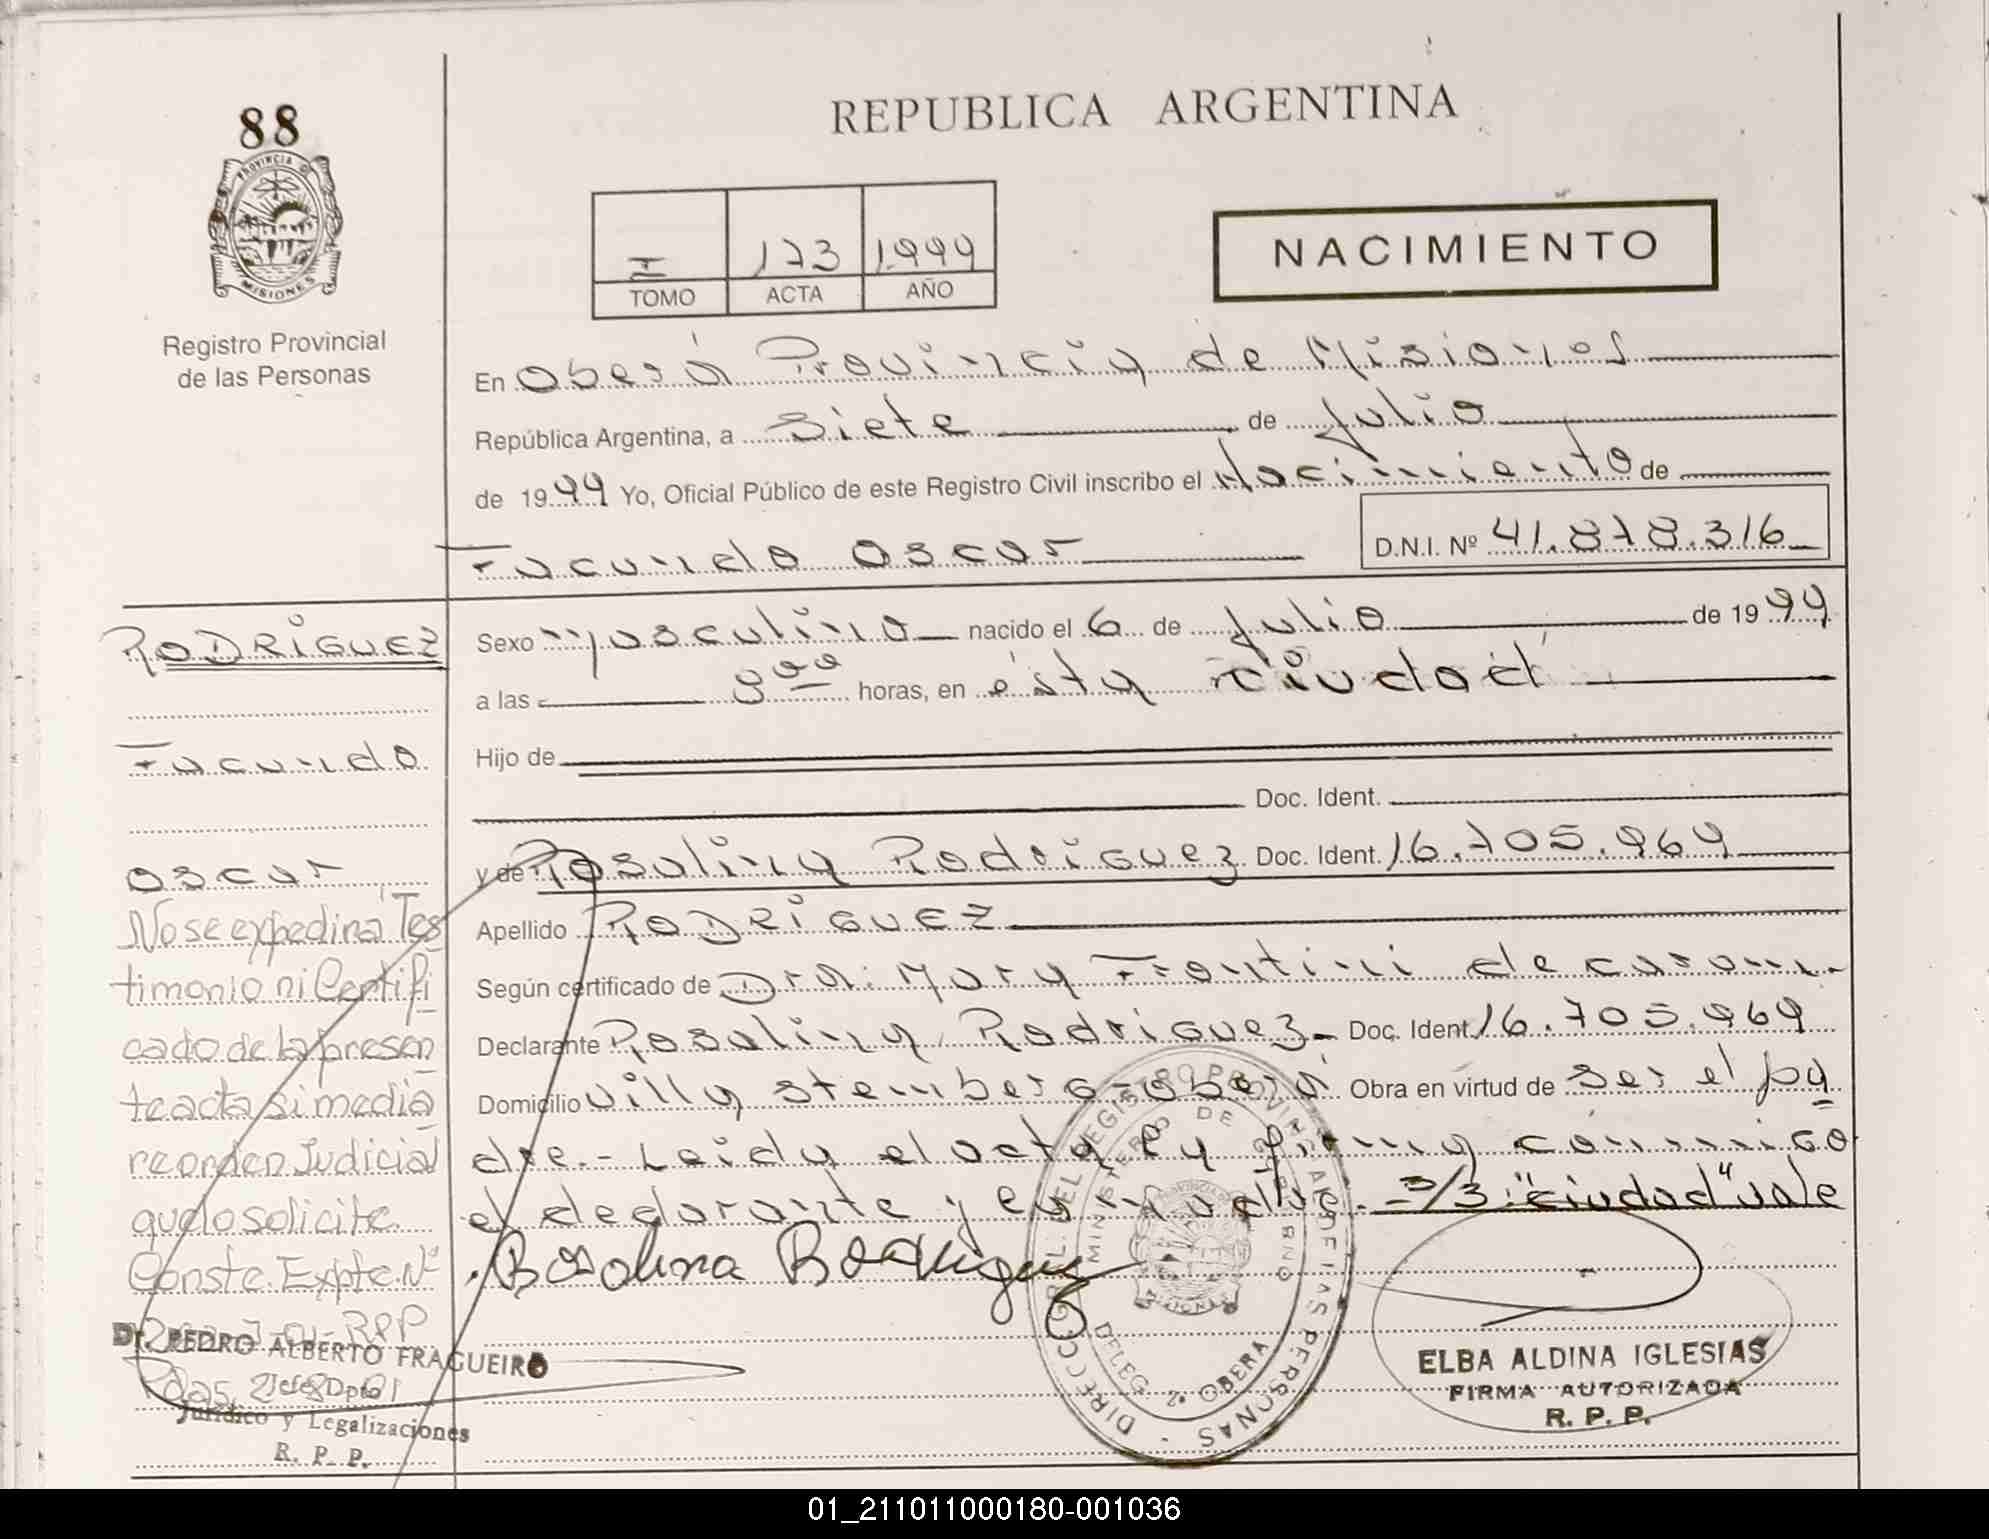 88
PROVINCIA D
MISIONES
Registro Provincial
de las Personas
REPUBLICA ARGENTINA
I 173 1999
TOMO ACTA AÑO
NACIMIENTO
En Oberá Provincia de Misiones
República Argentina, a siete de Julio
de 1999 Yo, Oficial Público de este Registro Civil inscribo el Nacimiento de
Facundo Oscar D.N.I. Nº 41.878.316
Sexo masculino nacido el 6 de Julio de 1999
a las horas, en ésta ciudad
Hijo de
Doc. Ident.
y de Rosalina Rodriguez Doc. Ident. 16.705.969
Apellido RODRIGUEZ
Según certificado de Dra. Mary Frontini de
Declarante Rosalina Rodriguez Doc. Ident. 16.705.969
Domicilio Villa Stemberg-Oberá Obra en virtud de ser
Leida el acta la firma conmigo
el declarante y 3/3: "ciudad" vale
Rosalina Rodriguez
RODRIGUEZ
Facundo
Oscar
No se expedirá Tes
timonio ni Certifi
cado de la presen
te acta si media
re orden Judicial
que lo solicite
Conste. Expte. Nº
RPP
Dr. PEDRO ALBERTO FRAGUEIRO
Jefe Dpto
Jurídico y Legalizaciones
R. P. P.
DIRECC. GRAL. DEL REGISTRO PROVINCIAL DE LAS PERSONAS
MINISTERIO DE GOBIERNO
MISIONES
DELEG. 2ª OBERA
ELBA ALDINA IGLESIAS
FIRMA AUTORIZADA
R. P. P.
01_211011000180-001036